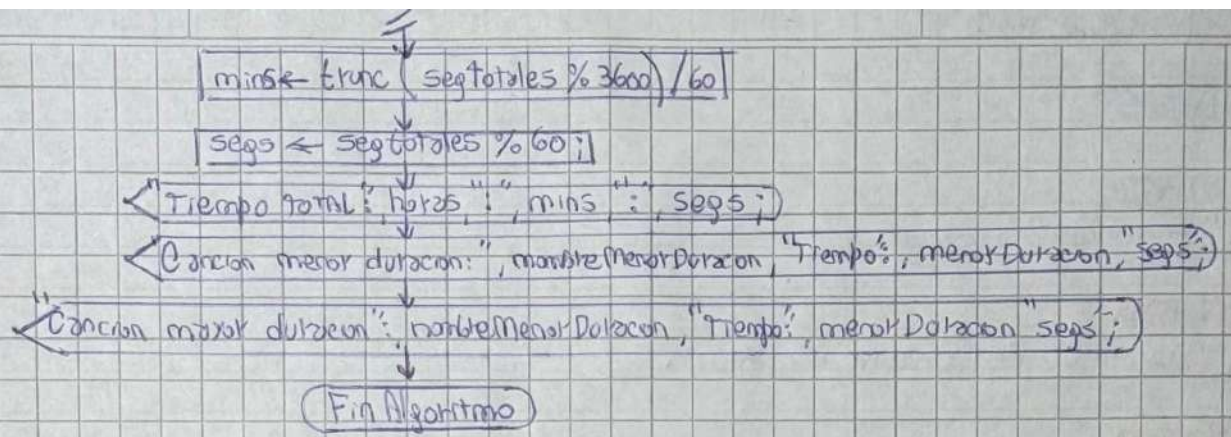 mins ← trunc (segtotales % 3600) / 60
segs ← segtotales % 60;
"Tiempo total: ", horas, ":", mins, ":", segs;
"Cancion menor duracion: ", nombreMenorDuracon, "Tiempo: ", menorDuracon, "segs";
"Cancion mayor duracon": nombreMenorDuracon, "Tiempo:", menorDuracon "segs";
Fin Algoritmo